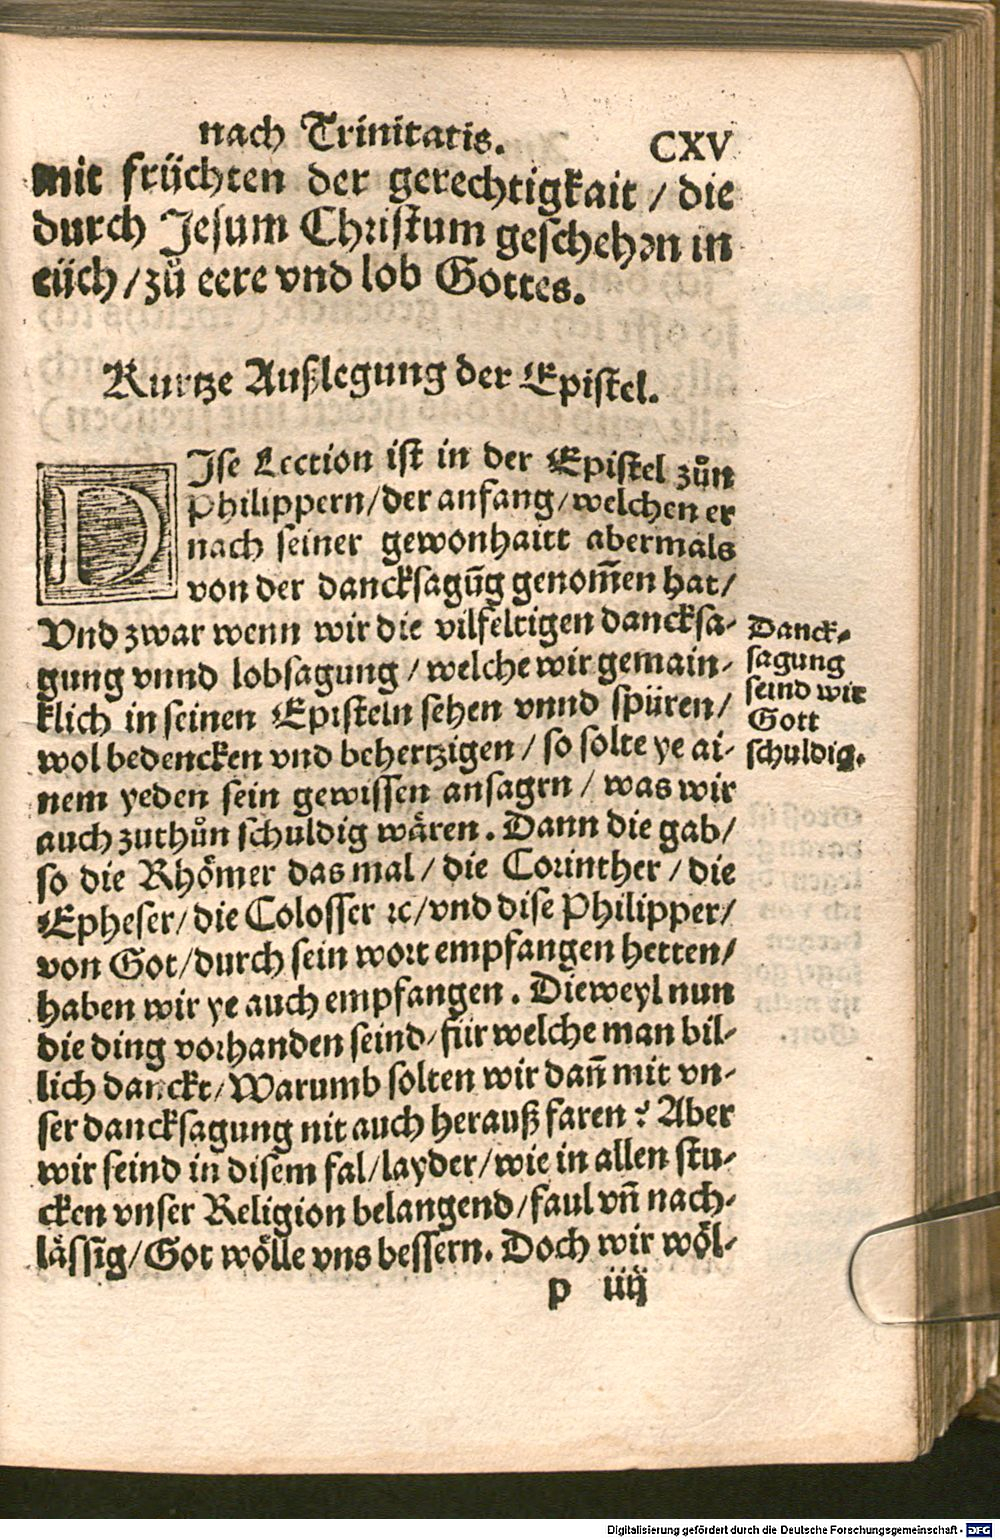 nach Trinitatis. CXV
mit früchten der gerechtigkait / die
durch Jesum Christum geschehen in
eüch / zů eere vnd lob Gottes.
Kurtze Außlegung der Epistel.
DIse Lection ist in der Epistel zůn
Philippern / der anfang / welchen er
nach seiner gewonhaitt abermals
von der dancksagūg genom̄en hat /
Vnd zwar wenn wir die vilfeltigen dancksa-
gung vnnd lobsagung / welche wir gemain-
klich in seinen Episteln sehen vnnd spüren /
wol bedencken vnd behertzigen / so solte ye ai-
nem yeden sein gewissen ansagen / was wir
auch zuthůn schuldig wären. Dann die gab /
so die Rhömer das mal / die Corinther / die
Epheser / die Colosser ꝛc / vnd dise Philipper /
von Got / durch sein wort empfangen hetten /
haben wir ye auch empfangen. Dieweyl nun
die ding vorhanden seind / für welche man bil-
lich danckt / Warumb solten wir dan̄ mit vn-
ser dancksagung nit auch herauß faren? Aber
wir seind in disem fal / layder / wie in allen stu-
cken vnser Religion belangend / faul vn̄ nach-
lässig / Got wölle vns bessern. Doch wir wöl-
p iiij
Danck-
sagung
seind wir
Gott
schuldig.
Digitalisierung gefördert durch die Deutsche Forschungsgemeinschaft - DFG